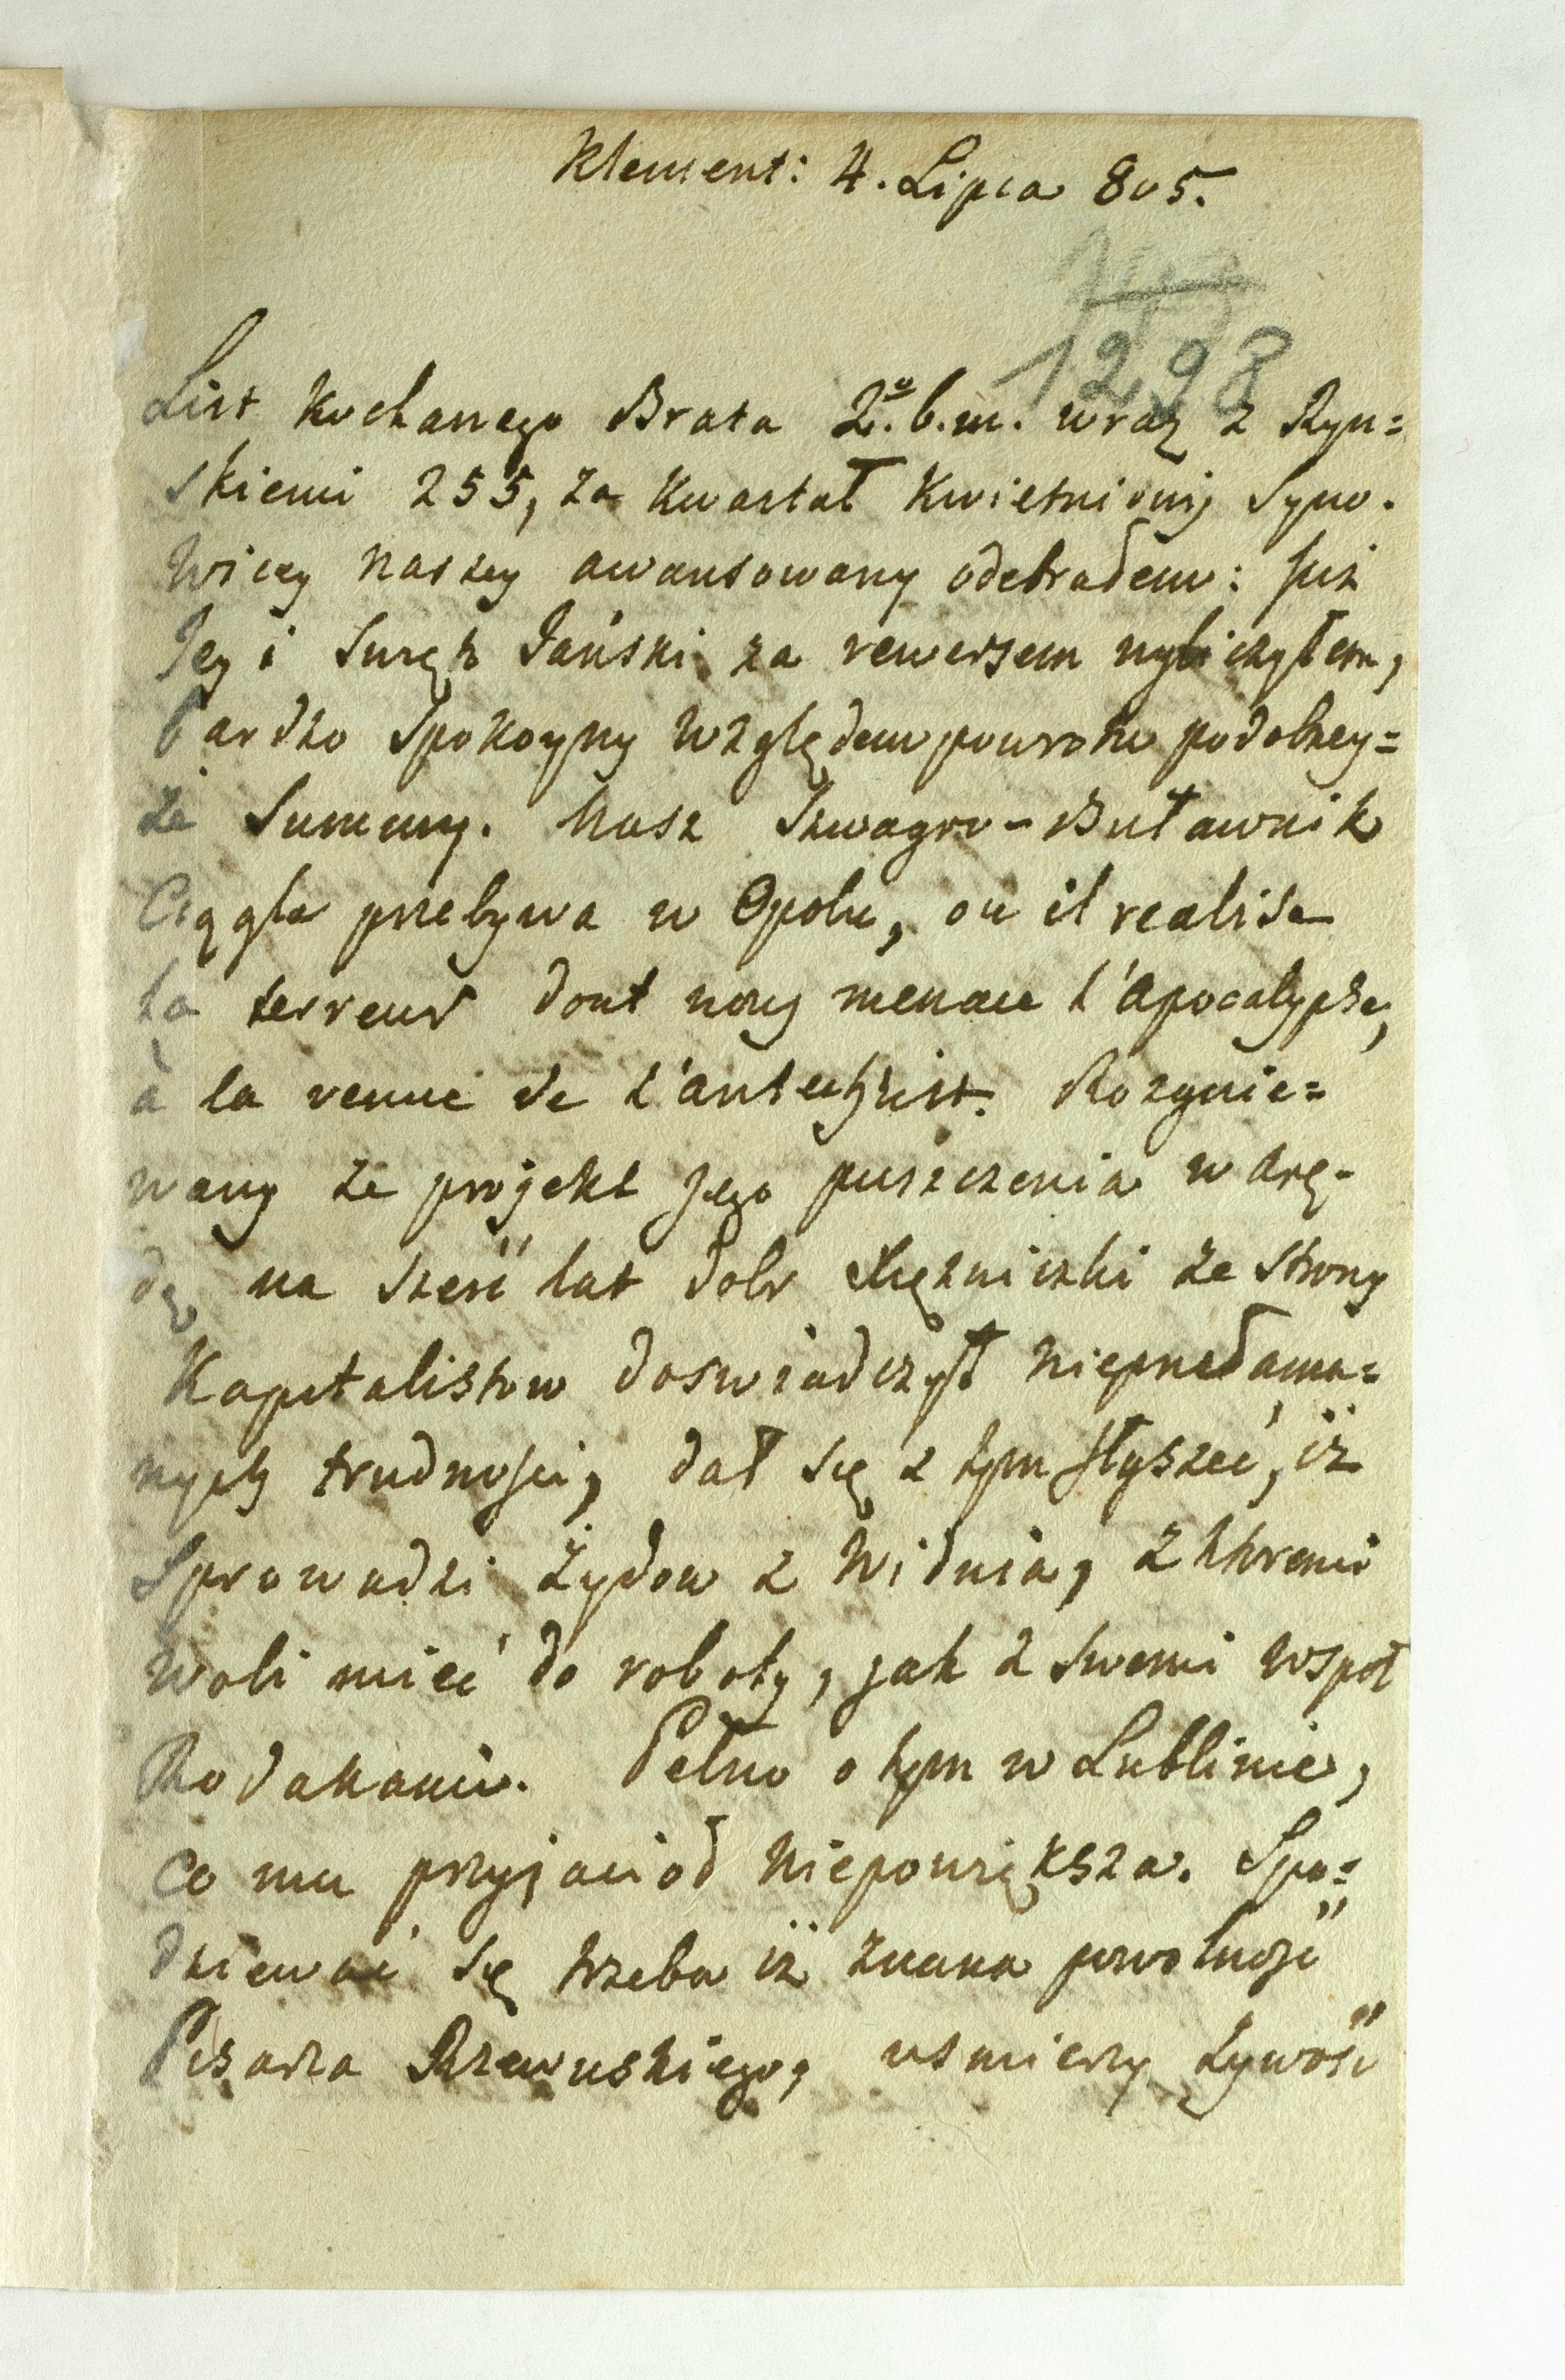 Klement: 4. Lipca 805.
1298
List kochanego Brata 2º. b. m. wraz z Ryn=
skiemi 255, za kwartał kwietniowy Syno.
wicy naszey awansowany odebrałem: już
Jey i Surękę Pański za rewersem wyliczyłem,
bardzo spokoyny względem powrotu podobney=
że Summy. Nasz Szwagro-Buławnik
Ciągle przebywa w Opolu, ou il realise
la terreur dont nous menace l'apocalypse,
à la venue de l'antechrist. Rozgnie=
wany że projekt jego puszczenia w arę-
dę na sześć lat dobr Xiężniczki ze strony
Kapitalistow doswiadczył nieprzełama=
nych trudności, dał się z tym słyszeć, iż
Sprowadzi Żydow z Widnia, z ktoremi
woli mieć do roboty, jak z swemi wspoł
Rodakami. Pełno o tym w Lublinie,
co mu przyjacioł niepowiększa. Spo=
dziewać się trzeba iż znana powolność
Pisarza Rzewuskiego, usmierzy żywość